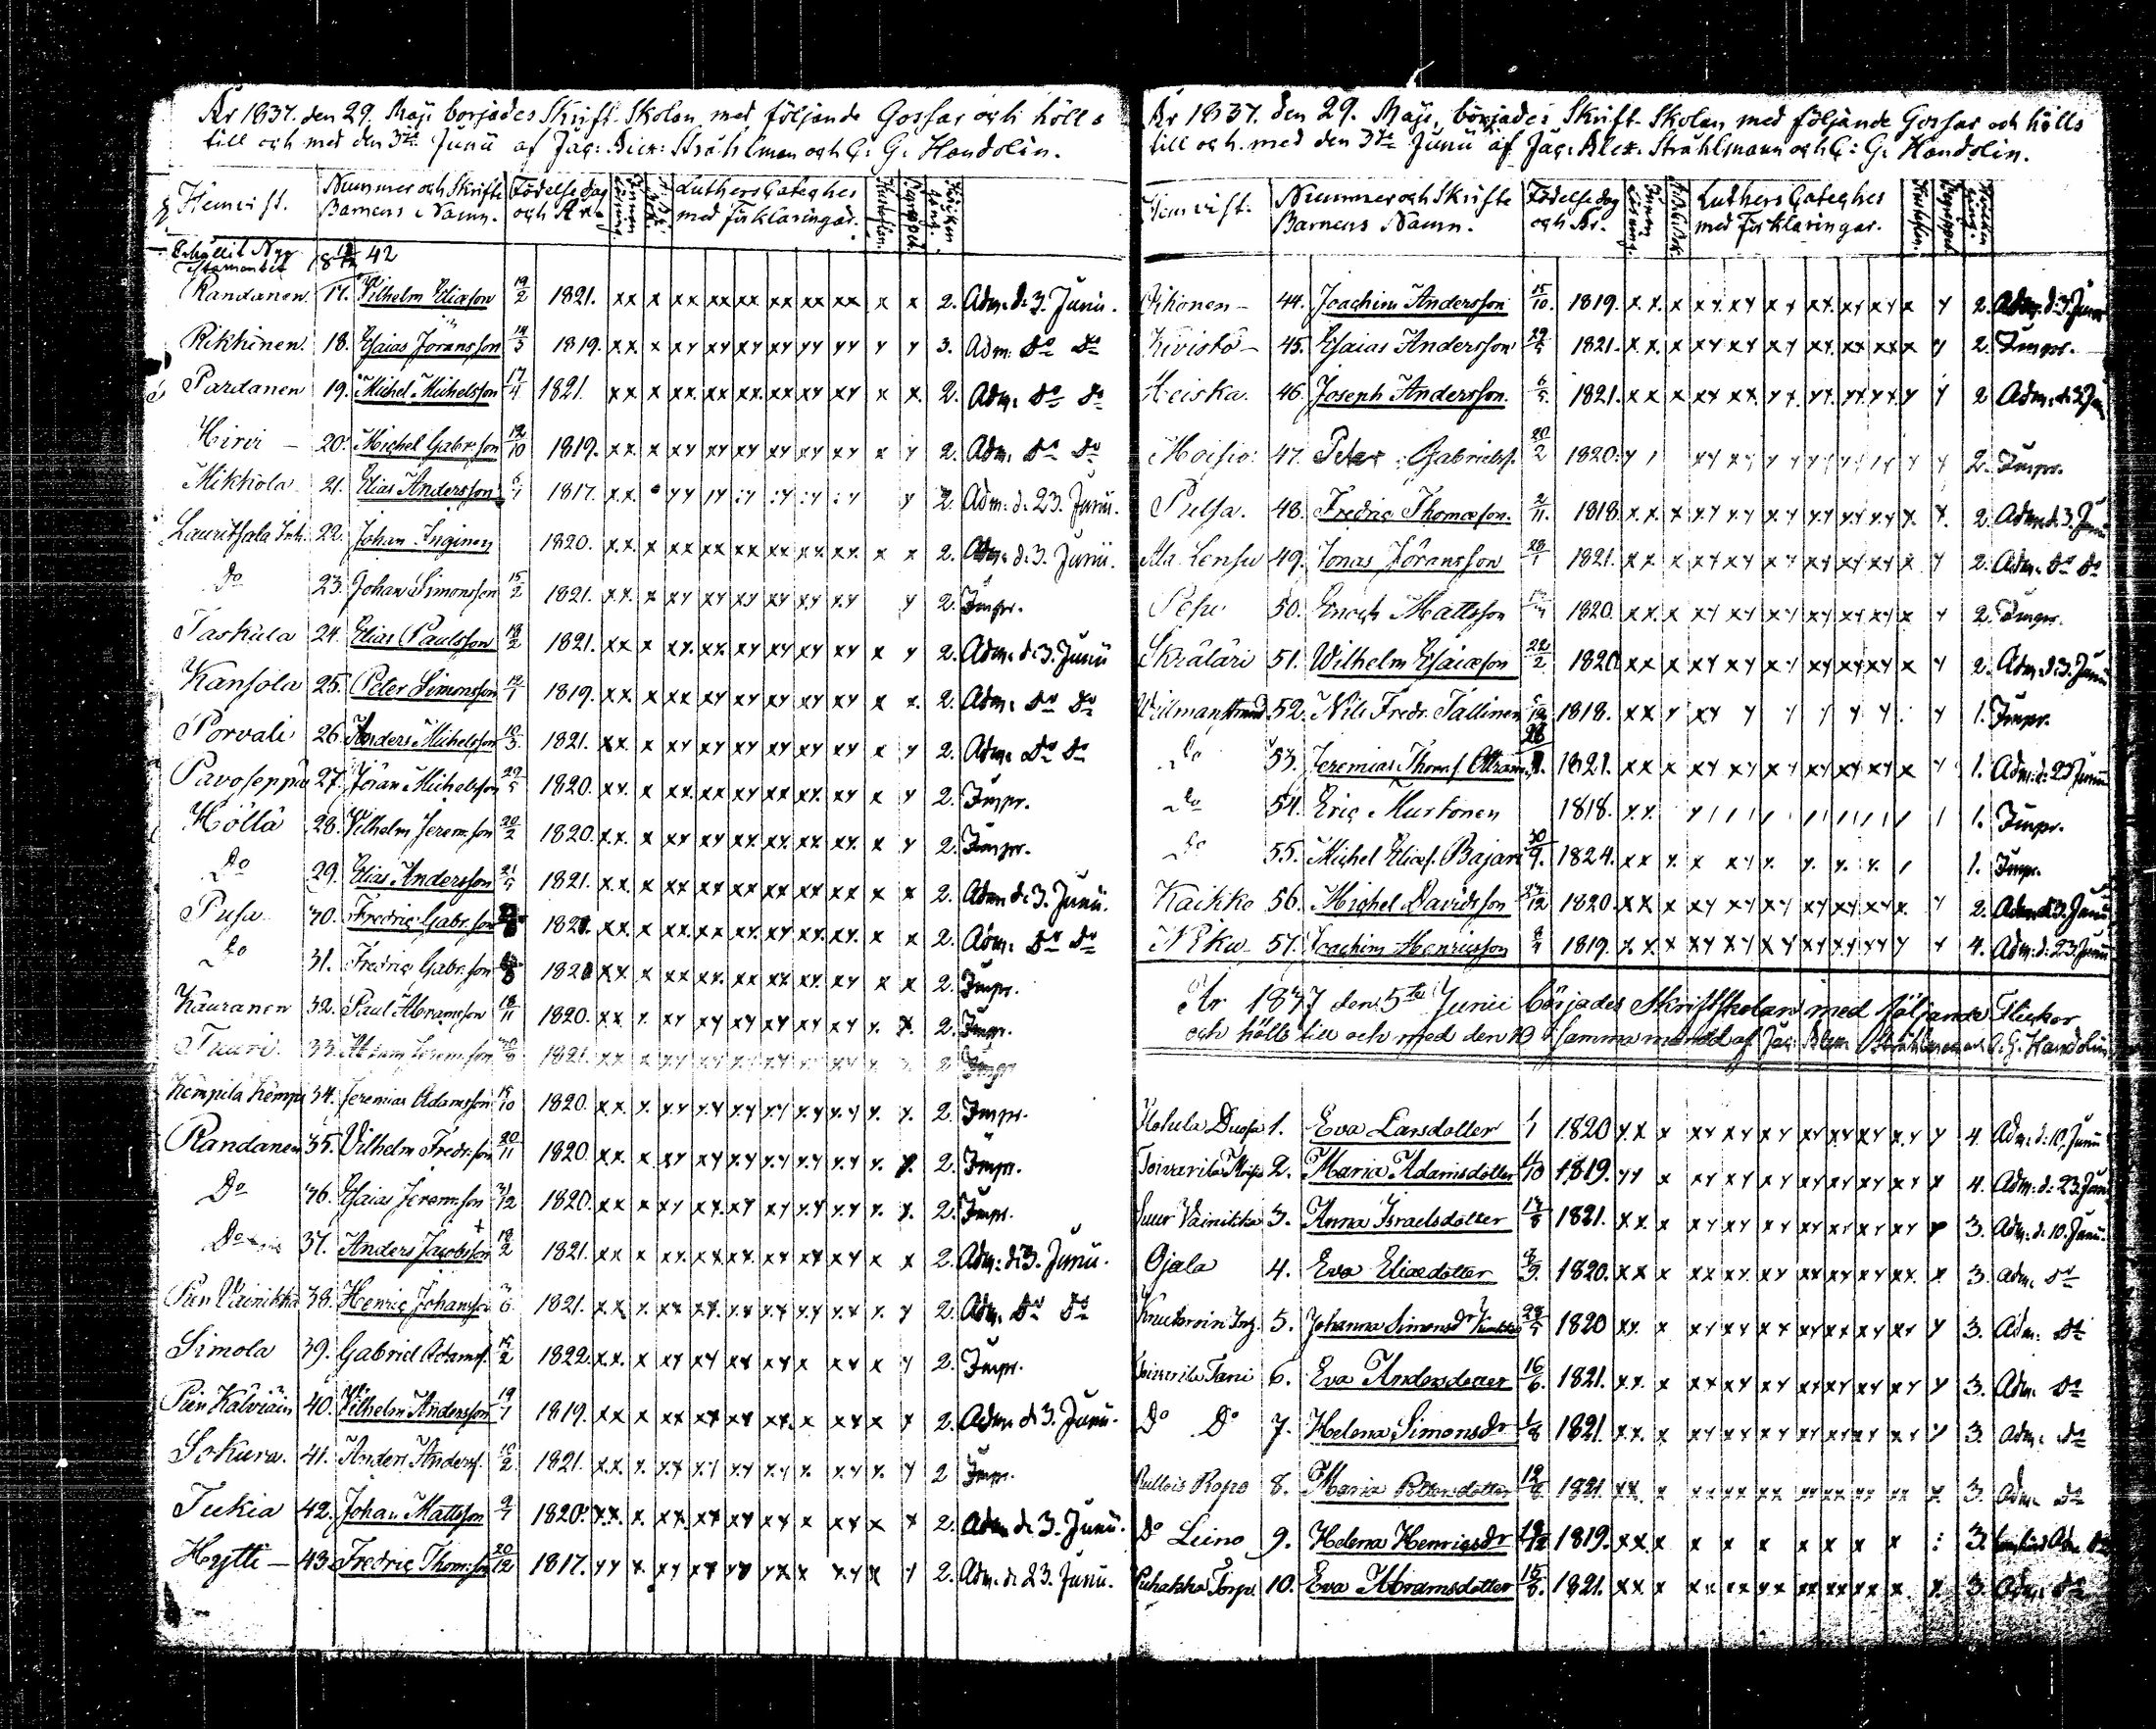 År 1837. den 29. Maji borjades Skrift Skolan med följande Gossar och hölls
till och med den 3die Junii af Jac: Alex: Stråhlman och C: G: Handolin.
Hemvist. Nummer och Skrifte Barnens Namn. Födelse dag och År. Luthers Gateghes med Förklaringar.
18 42
Randanen. 17. Vilhelm Eliæson 19/2 1821. xx x xx xx xx xx xx xx x x 2. Adm. d. 3. Junii.
Rikkinen. 18. Esaias Göransson 14/3 1819. xx. x xy xy xy xy yy yy y y 3. Adm. Do Do
Pardanen 19. Michel Michelsson 17/4 1821. xx x xx. xx. xx xx. xy xy x x 2. Adm. Do Do
Hirvi – 20. Michel Gabr.son 12/10 1819. xx x xy xy xy xy xy xy x y 2. Adm. Do Do
Mikkola 21. Elias Andersson 1817. xx. yy 1y :y :y :y :y y 2. Adm. d. 23. Junii.
Lauritsala 22. Johan Inginen 1820. xx. x xx xx xx xx xx xx. x x 2. Adm. d. 3. Junii.
Do 23. Johan Simonsson 15/2 1821. xx. x xy xy xy xy xy xy y 2. Impr.
Taskula 24. Elias Paulsson 18/2 1821. xx x xx. xx. xy xy xy xy x y 2. Adm. d. 3. Junii
Kansola 25. Peter Simonsson 1819. xx x xx xy xy xy xy xy x x. 2. Adm. Do Do
Porvali 26. Anders Michelsson 10/3. 1821. xx. x xy xy xy xy xy xy x y 2. Adm. Do Do
Pavoseppä 27. Jöran Michelsson 29/5 1820. xx. x xx. xx xy xx xx. xy x y 2. Impr.
Höltä 28. Vilhelm Jerem.son 20/2 1820. xx. x xx xy xy. xy. xy. xy. x y 2. Impr.
Do 29. Elias Andersson 21/5 1821. xx x xx xx xx xx xx xx x x 2. Adm d. 3. Junii.
Pusa 30. Fredric Gabr.son 1821. xx. x xx. xx. xy xy. xy. xx. x x 2. Adm. Do Do
Do 31. Fredric Gabr.son 1821 xx x xx xx. xx. xx xx xx x x 2. Impr.
Käuranen 32. Paul Abramsson 18/11 1820. xx x. xy xy xy xy xy xy x. x. 2. Impr.
33. 1821. 2
34. Jeremias Adamsson 15/10 1820. xx x. xy xy xy xy xy xy x. x. 2. Impr.
Randanen 35. Vilhelm Fredr.son 20/11 1820. xx. x xy xy xy xy xy xy x. x. 2. Impr.
Do 36. Esaias Jerem.son 31/12 1820. xx x xy xy. xy xy. xy. xy x. x. 2. Impr.
Do 37. Anders Jacobsson 18/2 1821. xx x xy. xx. xx. xy xx xy x x 2. Adm: d. 3. Junii.
Pien Vainikka 38. Henric Johansson 1821. xx x. xx xy. xx xx xy xx x. y 2. Adm. Do Do
Simola 39. Gabriel Adamss. 15/2 1822. xx. x xy xy xy xy x xy x y 2. Impr.
Pien Kälviäin 40. Vilhelm Andersson 1819. xx x xx xy xy xy. x xx x x 2. Adm. d. 3. Junii.
Sokura. 41. Anders Anderss. 18/2 1821. xx. x. xy xy xy xy x xy x. y 2 Impr.
Tukia 42. Johan Mattsson 1820. xx. x xx. xy xy xy x xy x x 2. Adm d. 3. Junii.
Hytti – 43. Fredric Thom.son 20/12 1817. yy x. xy xy xy yx x xy x y 2. Adm. d. 23. Junii.
År 1837. den 29. Maji, börjades Skrift-Skolan med följande Gossar och hölls
till och med den 3die Junii af Jac. Alex. Stråhlmann och C: G. Handolin.
Hemvist. Nummer och Skrifte Barnens Namn. Födelse dag och År. Luthers Gateghes med Förklaringar.
44. Joachim Andersson 15/10. 1819. x x. x xy xy xy xy. xy xy x y 2. Adm. d. 3. Junii
Kivistö – 45. Esaias Andersson 1821. x x. x xy xy xy xy. xx xx x y 2. Impr.
Heiska. 46. Joseph Andersson. 1821. x x. x xy xx. yy. yy. yy. yy. y y 2 Adm. d. 3 Jun
Moisio: 47. Peter Gabrielss. 20/2 1820. 2. Impr.
Pulsa. 48. Fredric Thomæson. 2/11. 1818 xx. x xy xy xy xy xy xy x. y. 2. Adm. d. 3. Junii
49. Jonas Göransson 1821. xx x xy xy xy xy xy xy x y 2. Adm. Do Do
50. Enoch Mattsson 1820. xx. x xy xy xy xy xy xy x y 2. Impr.
Skräläri 51. Wilhelm Esaiæson 22/2 1820. xx x xy xy xy xy xy xy x y 2. Adm. d. 3. Junii
Wilmanstrand 52. Nils Fredr. Tallinen 1818. xx y xy y y y y y y 1. Impr.
Do 53. Jeremias Thomas. 1821. xx x xy xy xy xy xy xy x y 1. Adm. d. 23 Junii
Do 54. Eric Murtonen 1818. 1. Impr.
Do 55. Michel Eliæs. Bajari 30/9. 1824. 1. Impr.
Kaikko 56. Michel Davidsson 27/12 1820. xx x xy xy xy xy xy xy x. y 2. Adm d. 3. Junii
57. Joachim Henricsson 1819. x x. x xy xy xy xy xy xy y y 4. Adm: d. 23. Junii
År 1837 den 5te Junii börjades Skriftskolan med följande Flickor
och hölls till och med den 10 samma månad af Jac. Alex Stråhlman och C. G. Handolin
1. Eva Larsdotter 1820 yx x xy xy xy xy xy xy xy y 4. Adm. d. 10. Junii
2. Maria Adamsdotter 1819. yy x xy xy xy xy xy xy xy y 4. Adm. d. 23. Jun
Suur Vainikka 3. Anna Israelsdotter 17/8 1821. xx x xy xy xy xy xy xy xy 3. Adm. d. 10. Junii.
Ojala 4. Eva Eliædotter 8/9. 1820. xx x xx xy. xy xx xy xy xx. x 3. Adm. Do
5. Johanna Simonsdr 1820 xx. x xy xy xy xy xx xy xy y 3. Adm. Do
6. Eva Andersdotter 16/6. 1821. xx. x xy xy xy xy xy xy xy y 3. Adm. Do
Do Do 7. Helena Simonsdr 1/8 1821. xx. x xy xy xy xy xy xy xy y 3. Adm. Do
8. Maria Pettersdotter 1821. xx. x xx xx xx xx xx xx xx x 3. Adm. Do
Do Leino 9. Helena Henricsdr 1819. xx. x x x x x x x x : 3. Adm. Do
10. Eva Abramsdotter 15/8. 1821. xx x xx xx xx xx xx x x x 3. Adm. Do